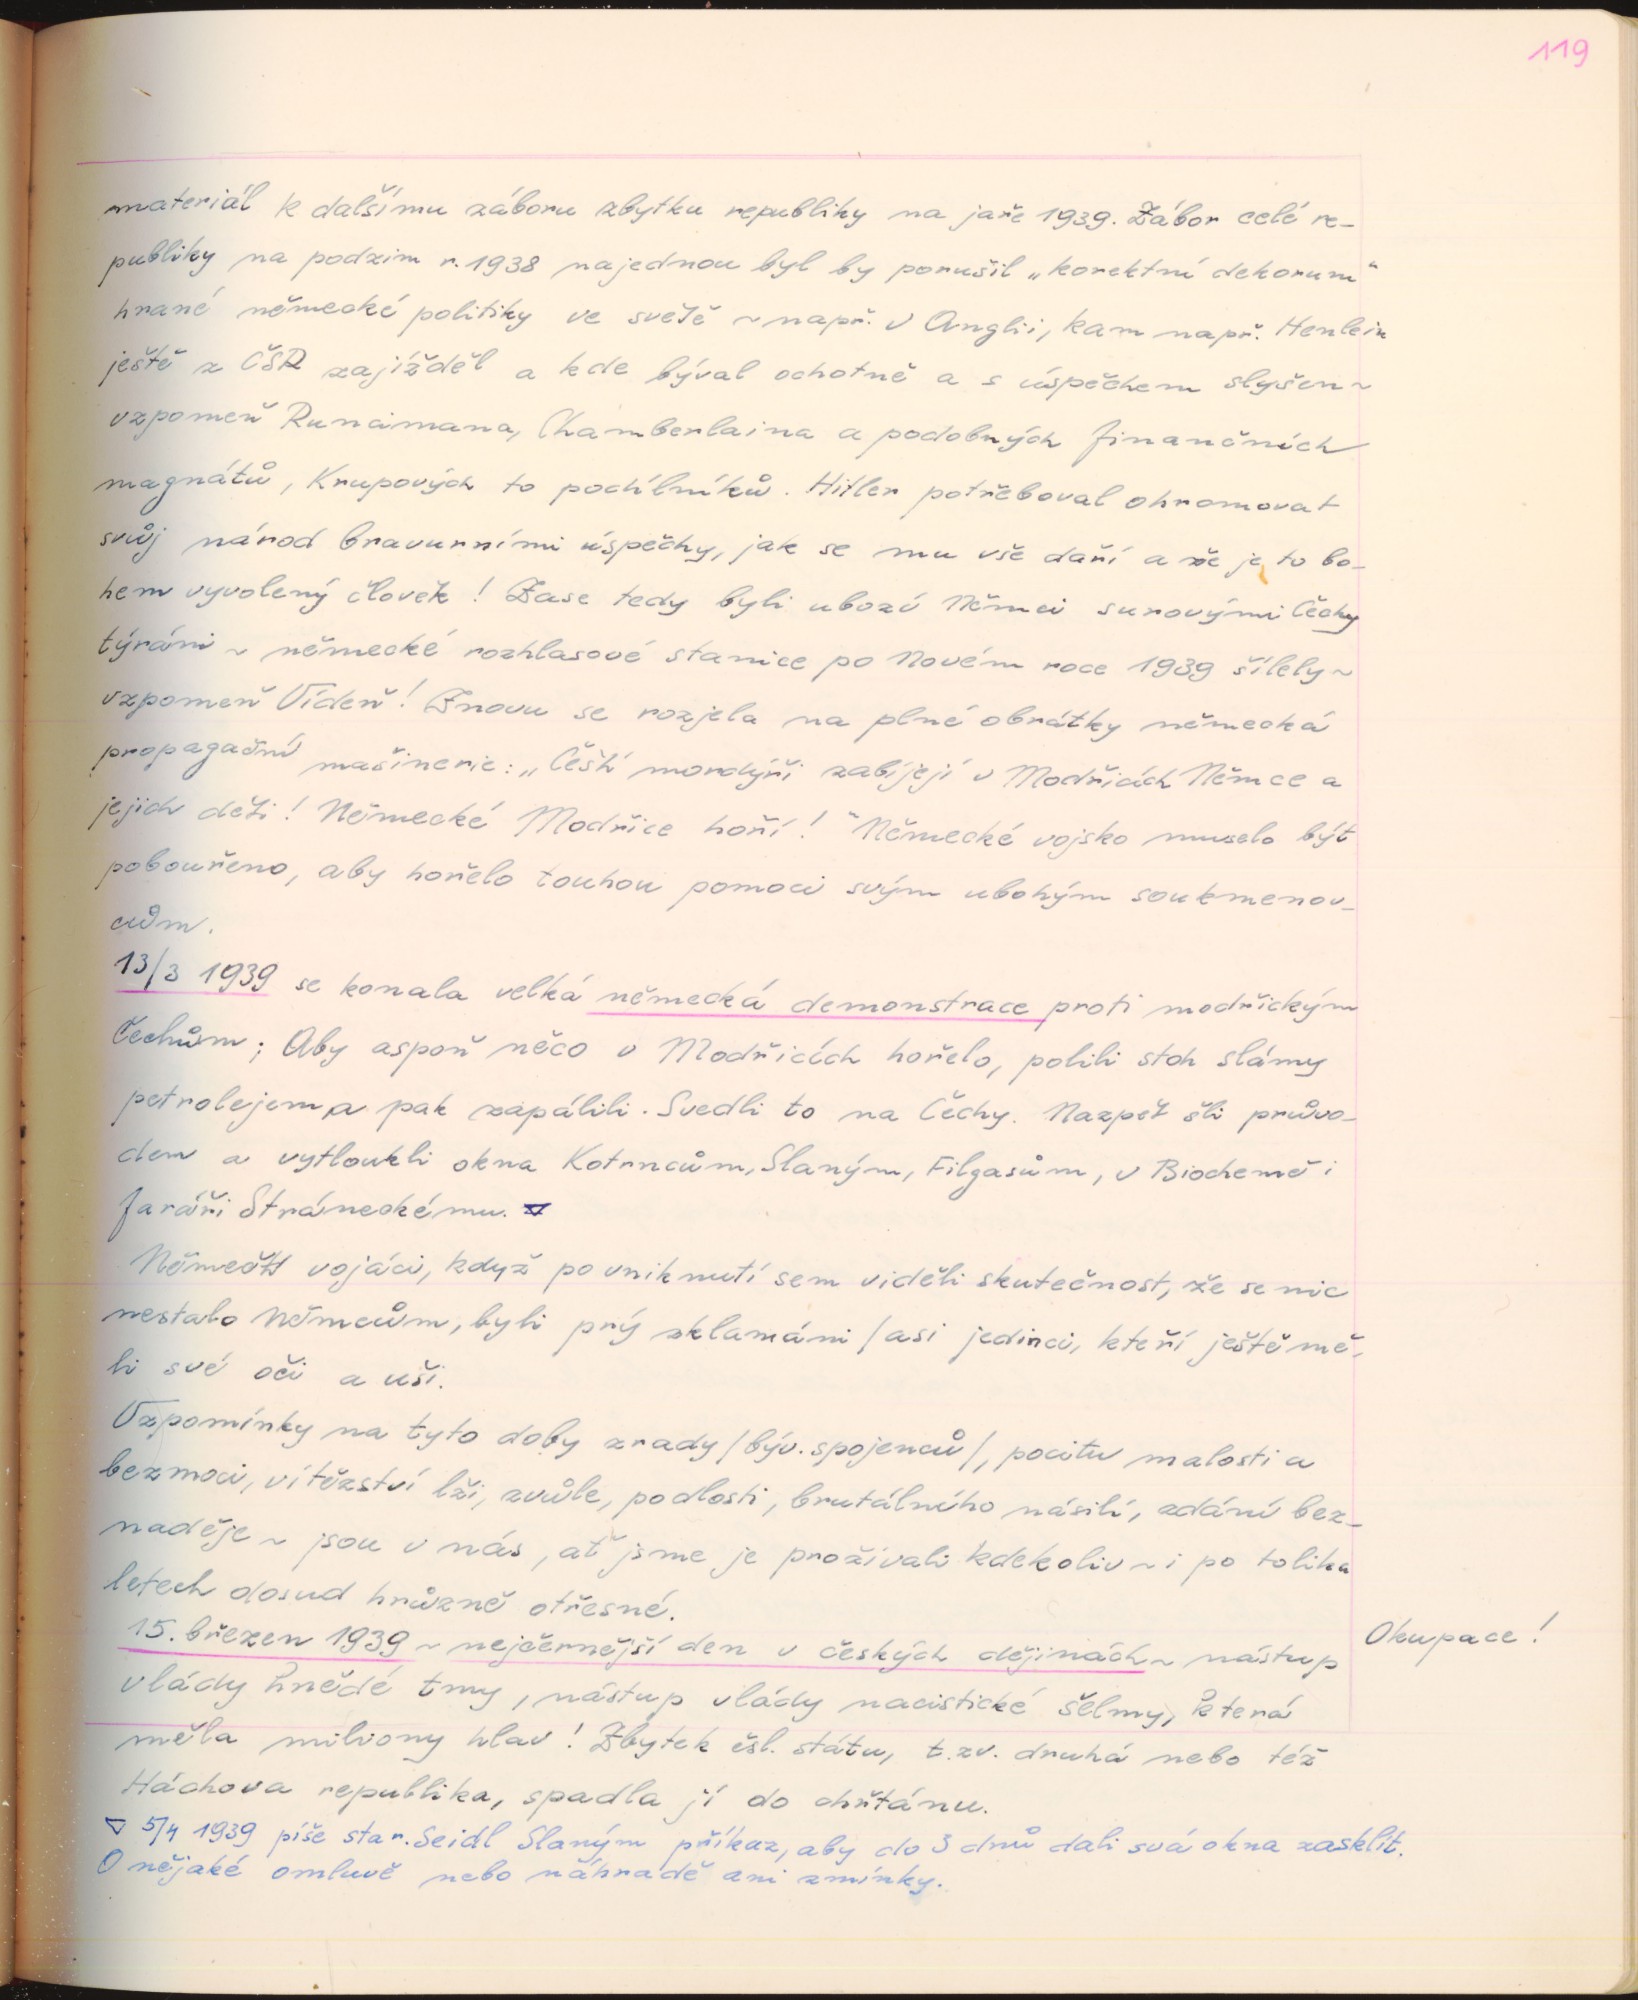 119
materiál k dalšímu záboru zbytku republiky na jaře 1939. Zábor celé re-
publiky na podzim r. 1938 najednou byl by porušil „korektní dekorum“
hrané německé politiky ve světě ~ např. v Anglii, kam např. Henlein
ještě z ČSR zajížděl a kde býval ochotně a s úspěchem slyšen ~
vzpomeň Runcimana, Chamberlaina a podobných finančních
magnátů, Krupových to podílníků. Hitler potřeboval ohromovat
svůj národ bravurními úspěchy, jak se mu vše daří a že je to bo-
hem vyvolený člověk! Zase tedy byli ubozí Němci surovými Čechy
týráni ~ německé rozhlasové stanice po Novém roce 1939 šílely ~
vzpomeň Vídeň! Znovu se rozjela na plné obrátky německá
propagační mašinerie: „Čeští mordýři zabíjejí v Modřicích Němce a
jejich děti! Německé Modřice hoří!“ Německé vojsko muselo být
pobouřeno, aby hořelo touhou pomoci svým ubohým soukmenov-
cům.
13/3 1939 se konala velká německá demonstrace proti modřickým
Čechům; Aby aspoň něco v Modřicích hořelo, polili stoh slámy
petrolejem a pak zapálili. Svedli to na Čechy. Nazpět šli průvo-
dem a vytloukli okna Kotrncům, Slaným, Filgasům, v Biochemě i
faráři Stráneckému. ▽
Němečtí vojáci, když po vniknutí sem viděli skutečnost, že se nic
nestalo Němcům, byli prý zklamáni /asi jedinci, kteří ještě mě-
li své oči a uši.
Vzpomínky na tyto doby zrady /býv. spojenců/, pocitu malosti a
bezmoci, vítězství lži, zvůle, podlosti, brutálního násilí, zdání bez-
naděje ~ jsou v nás, ať jsme je prožívali kdekoliv ~ i po tolika
letech dosud hrůzně otřesné.
15. březen 1939 ~ nejčernější den v českých dějinách ~ nástup
Okupace!
vlády hnědé tmy, nástup vlády nacistické šelmy, která
měla miliony hlav! Zbytek čsl. státu, t. zv. druhá nebo též
Háchova republika, spadla jí do chřtánu.
▽ 5/4 1939 píše star. Seidl Slaným příkaz, aby do 3 dnů dali svá okna zasklít.
O nějaké omluvě nebo náhradě ani zmínky.